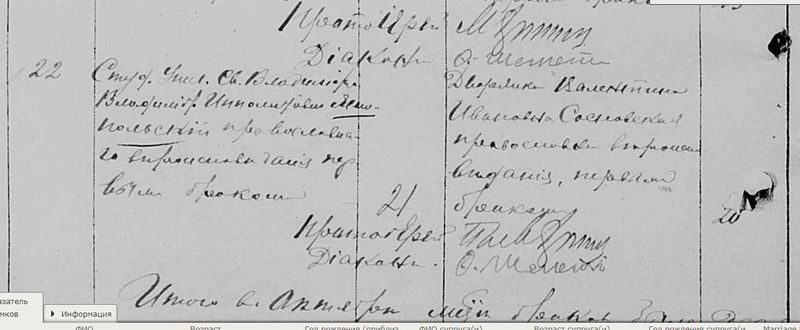 Протоіерей
Діаконъ
22
Студ. Унив. Св. Владиміра
Владиміръ Ипполитовичъ
польскій православна-
го вѣроисповѣданія пер-
вымъ бракомъ
21
Дворянка Валентина
Ивановна Сосновская
православн вѣроиспо
вѣданія, первымъ
бракомъ
20
Протоіерей
Діаконъ.
Итого въ Октябрѣ бракъ
казатель
мков
Информация
ФИО
Возраст
Год рождения (приблиз
ФИО супруга(и)
Возраст супруга(и)
Год рождения супруга(и)
Marriage